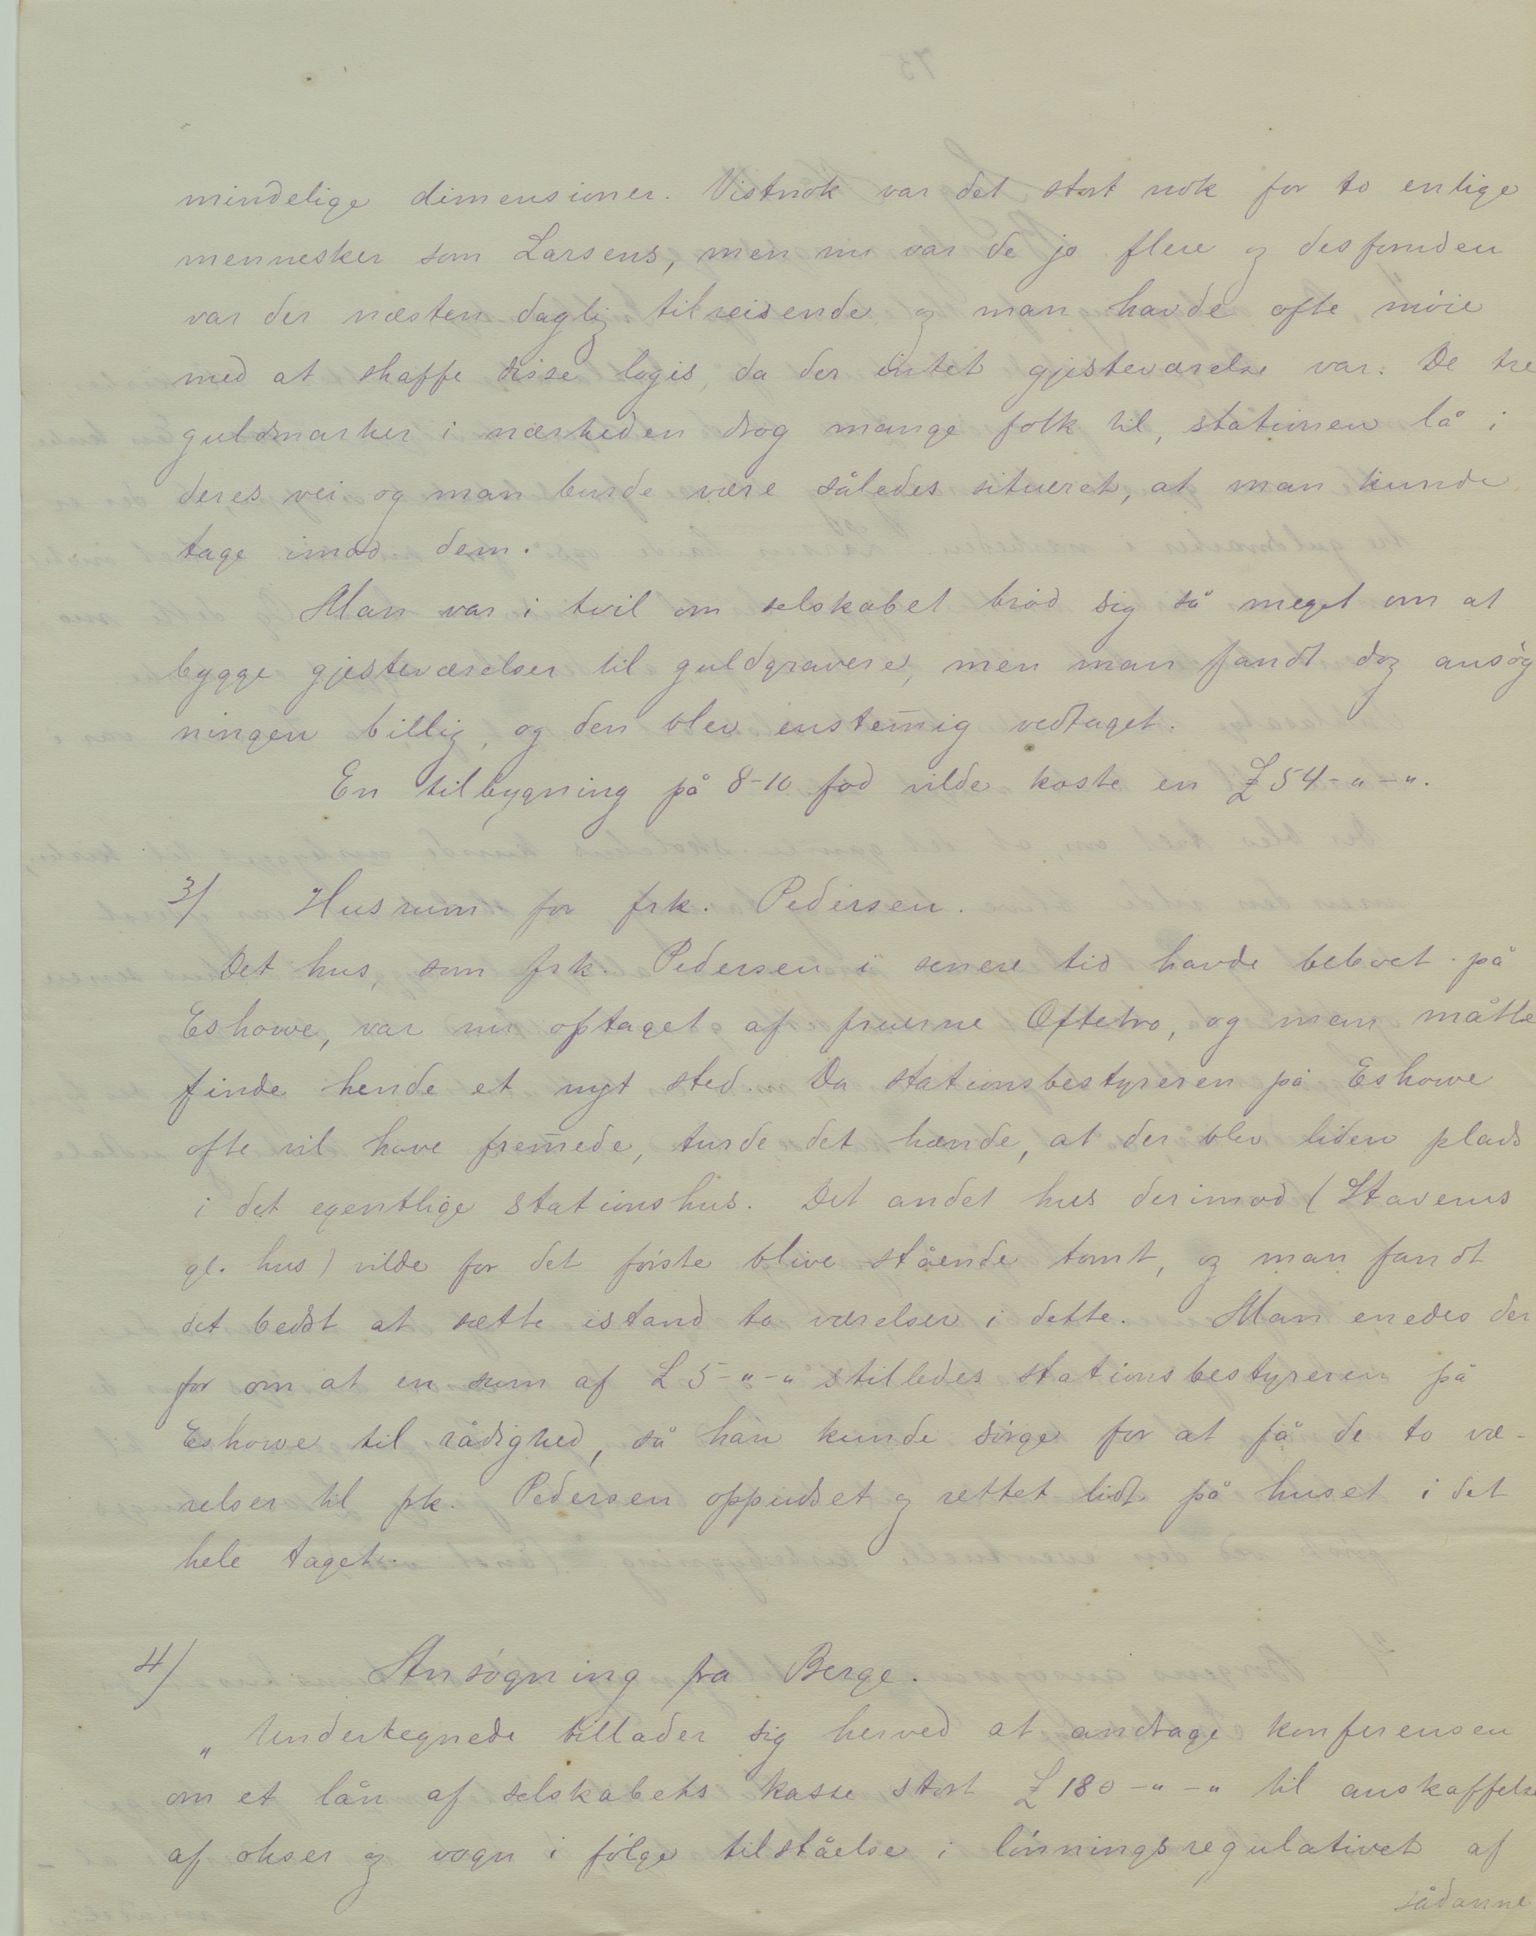 mindelige dimensioner. Vistnok var det stort nok for to enlige
mennesker som Larsens, men nu var de jo flere og desforuden
var der næsten daglig tilreisende og man havde ofte møie
med at skaffe disse logis, da der intet gjesteværelse var. De tre
guldmarker i nærheden drog mange folk til, stationen lå i
deres vei og man burde være således situeret, at man kunde
tage imod dem.
Man var i tvil om selskabet brød sig så meget om at
bygge gjesteværelser til guldgravere, men man fandt dog ansøg
ningen billig, og den blev enstem̄ig vedtaget.
En tilbygning på 8-10 fod vilde koste en £54-"-".
3/ Husrum for frk. Pedersen.
Det hus, som frk. Pedersen i senere tid havde beboet på
Eshowe, var nu optaget af fruerne Oftebro, og man måtte
finde hende et nyt sted. Da stationsbestyreren på Eshowe
ofte vil have frem̄ede, turde det hænde, at der blev liden plads
i det egentlige stationshus. Det andet hus derimod (Stavems
gl. hus) vilde for det første blive stående tomt, og man fandt
det bedst at sætte istand to værelser i dette. Man enedes der
for om at en sum af £5-"-" stilledes stationsbestyreren på
Eshowe til rådighed, så han kunde sørge for at få de to væ-
relser til frk. Pedersen oppudset og rettet lidt på huset i det
hele taget.
4/ Ansøgning fra Berge.
„Undertegnede tillader sig herved at andrage konferensen
om et lån af selskabets kasse stort £180-"-" til anskaffelse
af okser og vogn i følge tilståelse i lønningsregulativet af
sådanne